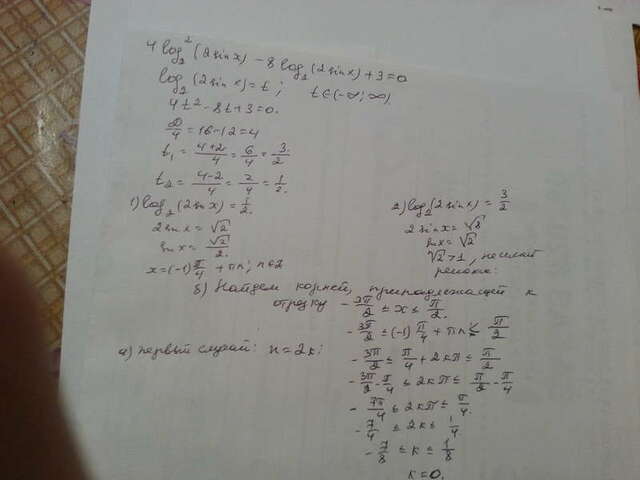 4 log₂²(2 sin x) − 8 log₂(2 sin x) + 3 = 0
log₂(2 sin x) = t; t ∈ (−∞; ∞)
4t² − 8t + 3 = 0.
D/4 = 16 − 12 = 4
t₁ = (4+2)/4 = 6/4 = 3/2
t₂ = (4−2)/4 = 2/4 = 1/2.
1) log₂(2 sin x) = 1/2.
2 sin x = √2
sin x = √2/2.
x = (−1) π/4 + πn; n∈Z
2) log₂(2 sin x) = 3/2
2 sin x = √8
sin x = √2
√2 > 1, не
решение.
б) Найдем корней, принадлежащей к
отрезку − 3π/2 ≤ x ≤ π/2.
− 3π/2 ≤ (−1) π/4 + πn ≤ π/2
а) первый случай: n = 2k;
− 3π/2 ≤ π/4 + 2kπ ≤ π/2
− 3π/2 − π/4 ≤ 2kπ ≤ π/2 − π/4
− 7π/4 ≤ 2kπ ≤ π/4
− 7/4 ≤ 2k ≤ 1/4
− 7/8 ≤ k ≤ 1/8
k = 0.